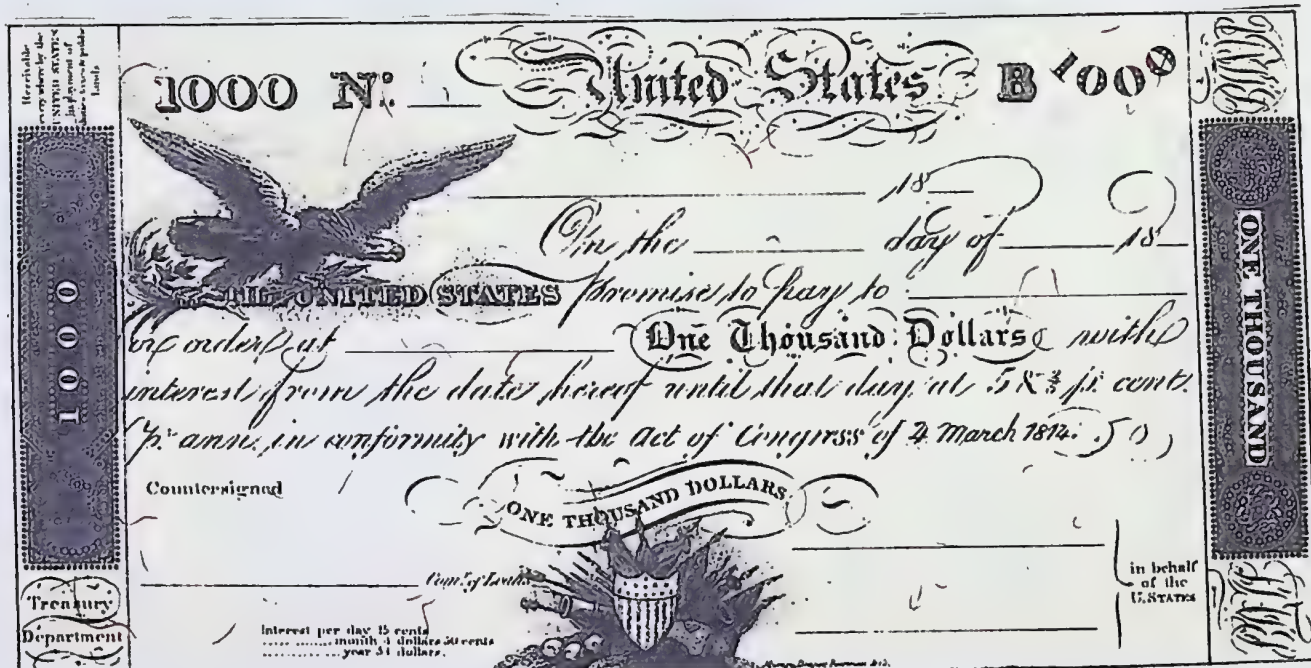 Receivable
every where by the
UNITED STATES
in payment of
duties taxes & public
Lands
1000 Nº. United States B 1000
18
On the day of 18
THE UNITED STATES promise to pay to
or order at One Thousand Dollars with
interest from the date hereof until that day at 5 & ⅖ pr. cent.
pr. ann. in conformity with the Act of Congress of 4 March 1814.
Countersigned
ONE THOUSAND DOLLARS
Comr. of Loans
in behalf
of the
U. STATES
Interest per day 15 cents
month 4 dollars 50 cents
year 54 dollars.
1000
Treasury
Department
ONE THOUSAND